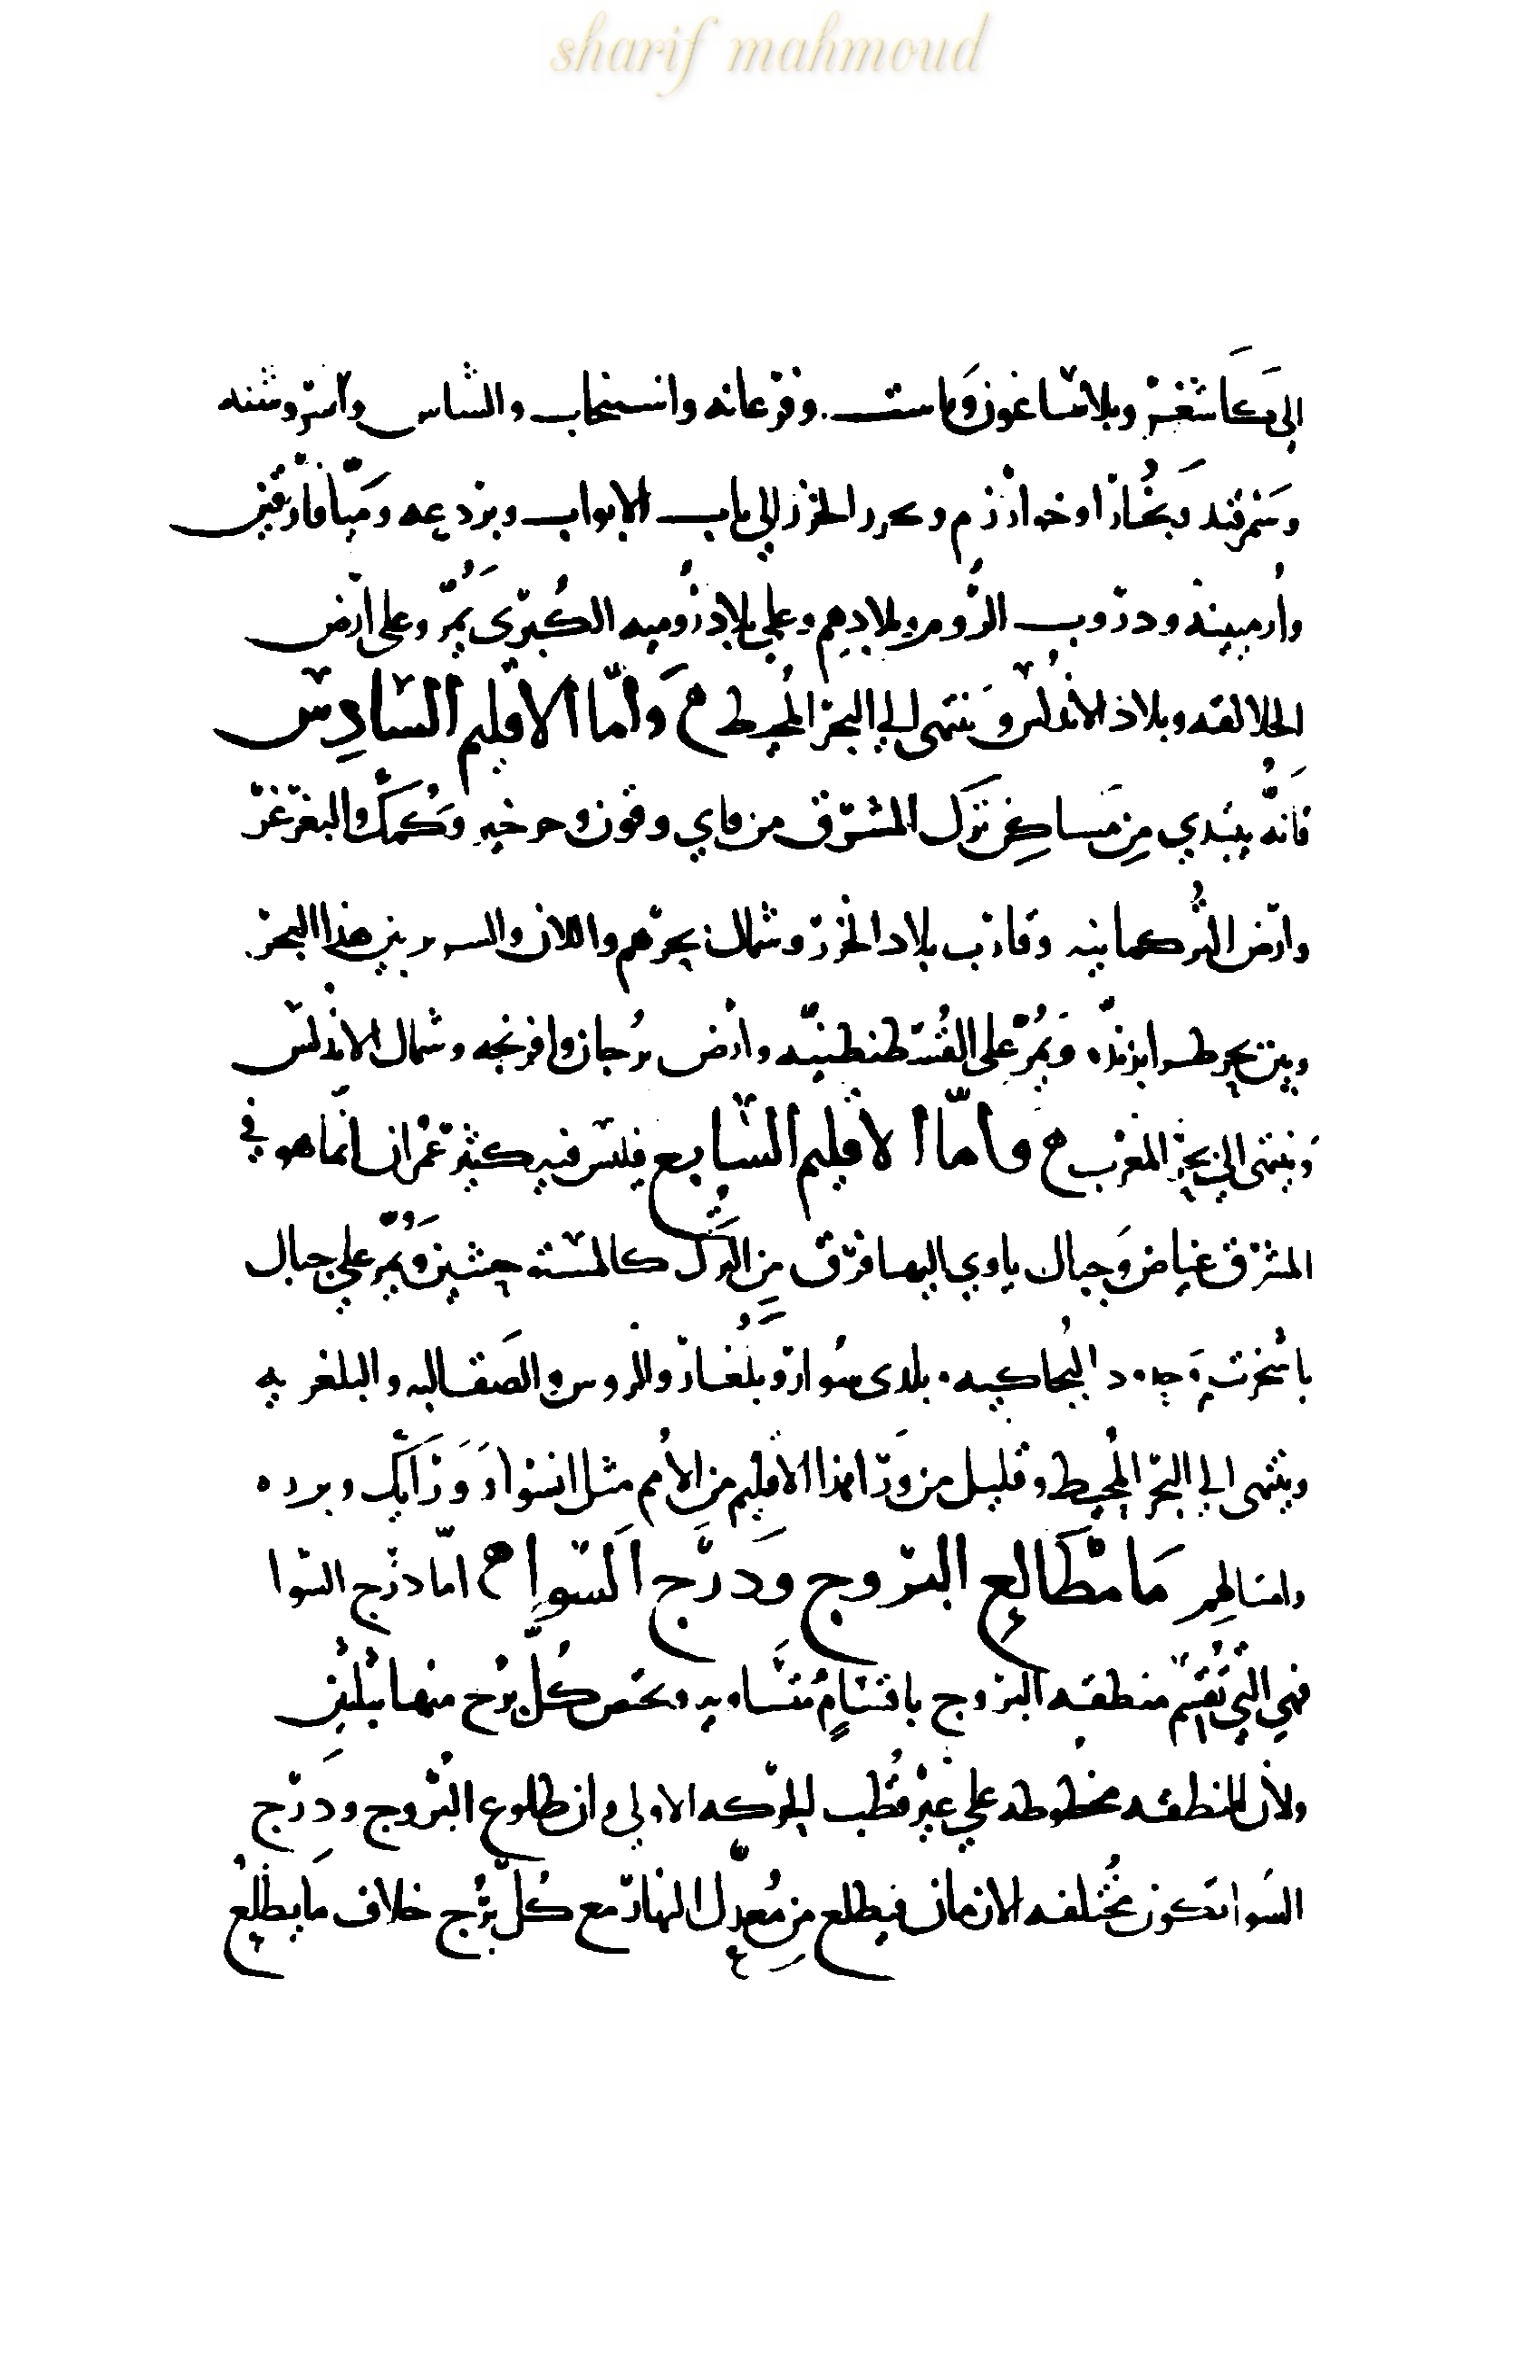 sharif mahmoud
الى كاشغر وبلاساغون وراست وفرغانه واسبيجاب والشاس واسروشنه
وسمرقند وبخارا وخوارزم وبحر الخزر الى باب الابواب وبردعه وميافارقين
وارمينيه ودروب الروم وبلادهم وعلى بلاد روميه الكبرى يمر وعلى ارض
الجلالقه وبلاد الاندلس وينتهى الى البحر المحيط واما الاقليم السادس
فانه يبتدي من مساكن ترك المشرق من قاي وقون وخرخيز وكمك والتغزغز
وارض التركمانيه وفاراب بلاد الخزر وشمال بحرهم واللان والسرير بين هذا البحر
وبين بحر طرابزنده ويمر على القسطنطنيه وارض برجان وافرنجه وشمال الاندلس
وينتهى الى بحر المغرب واما الاقليم السابع فليس فيه كثير عمران انما هو في
المشرق غياض وجبال ياوي اليها فرق من الترك كالمستوحشين ويمر على جبال
باشخرت البجاكيه بلدى سوار وبلغار والروس والصقالبه والبلغريه
وينتهى الى البحر المحيط وقليل من ورا هذا الاقليم من الامم مثل ايسوا وورانك ويرده
وامثالهم ما مطالع البروج ودرج السوا اما درج السوا
فهي التي تقسم منطقه البروج باقسام متساويه ويخص كل برج منها ثلثين
ولان المنطقه مخطوطه على غير قطب الحركه الاولى وان طلوع البروج ودرج
السوا تكون مختلفه الازمان فيطلع من معدل النهار مع كل برج خلاف ما يطلع